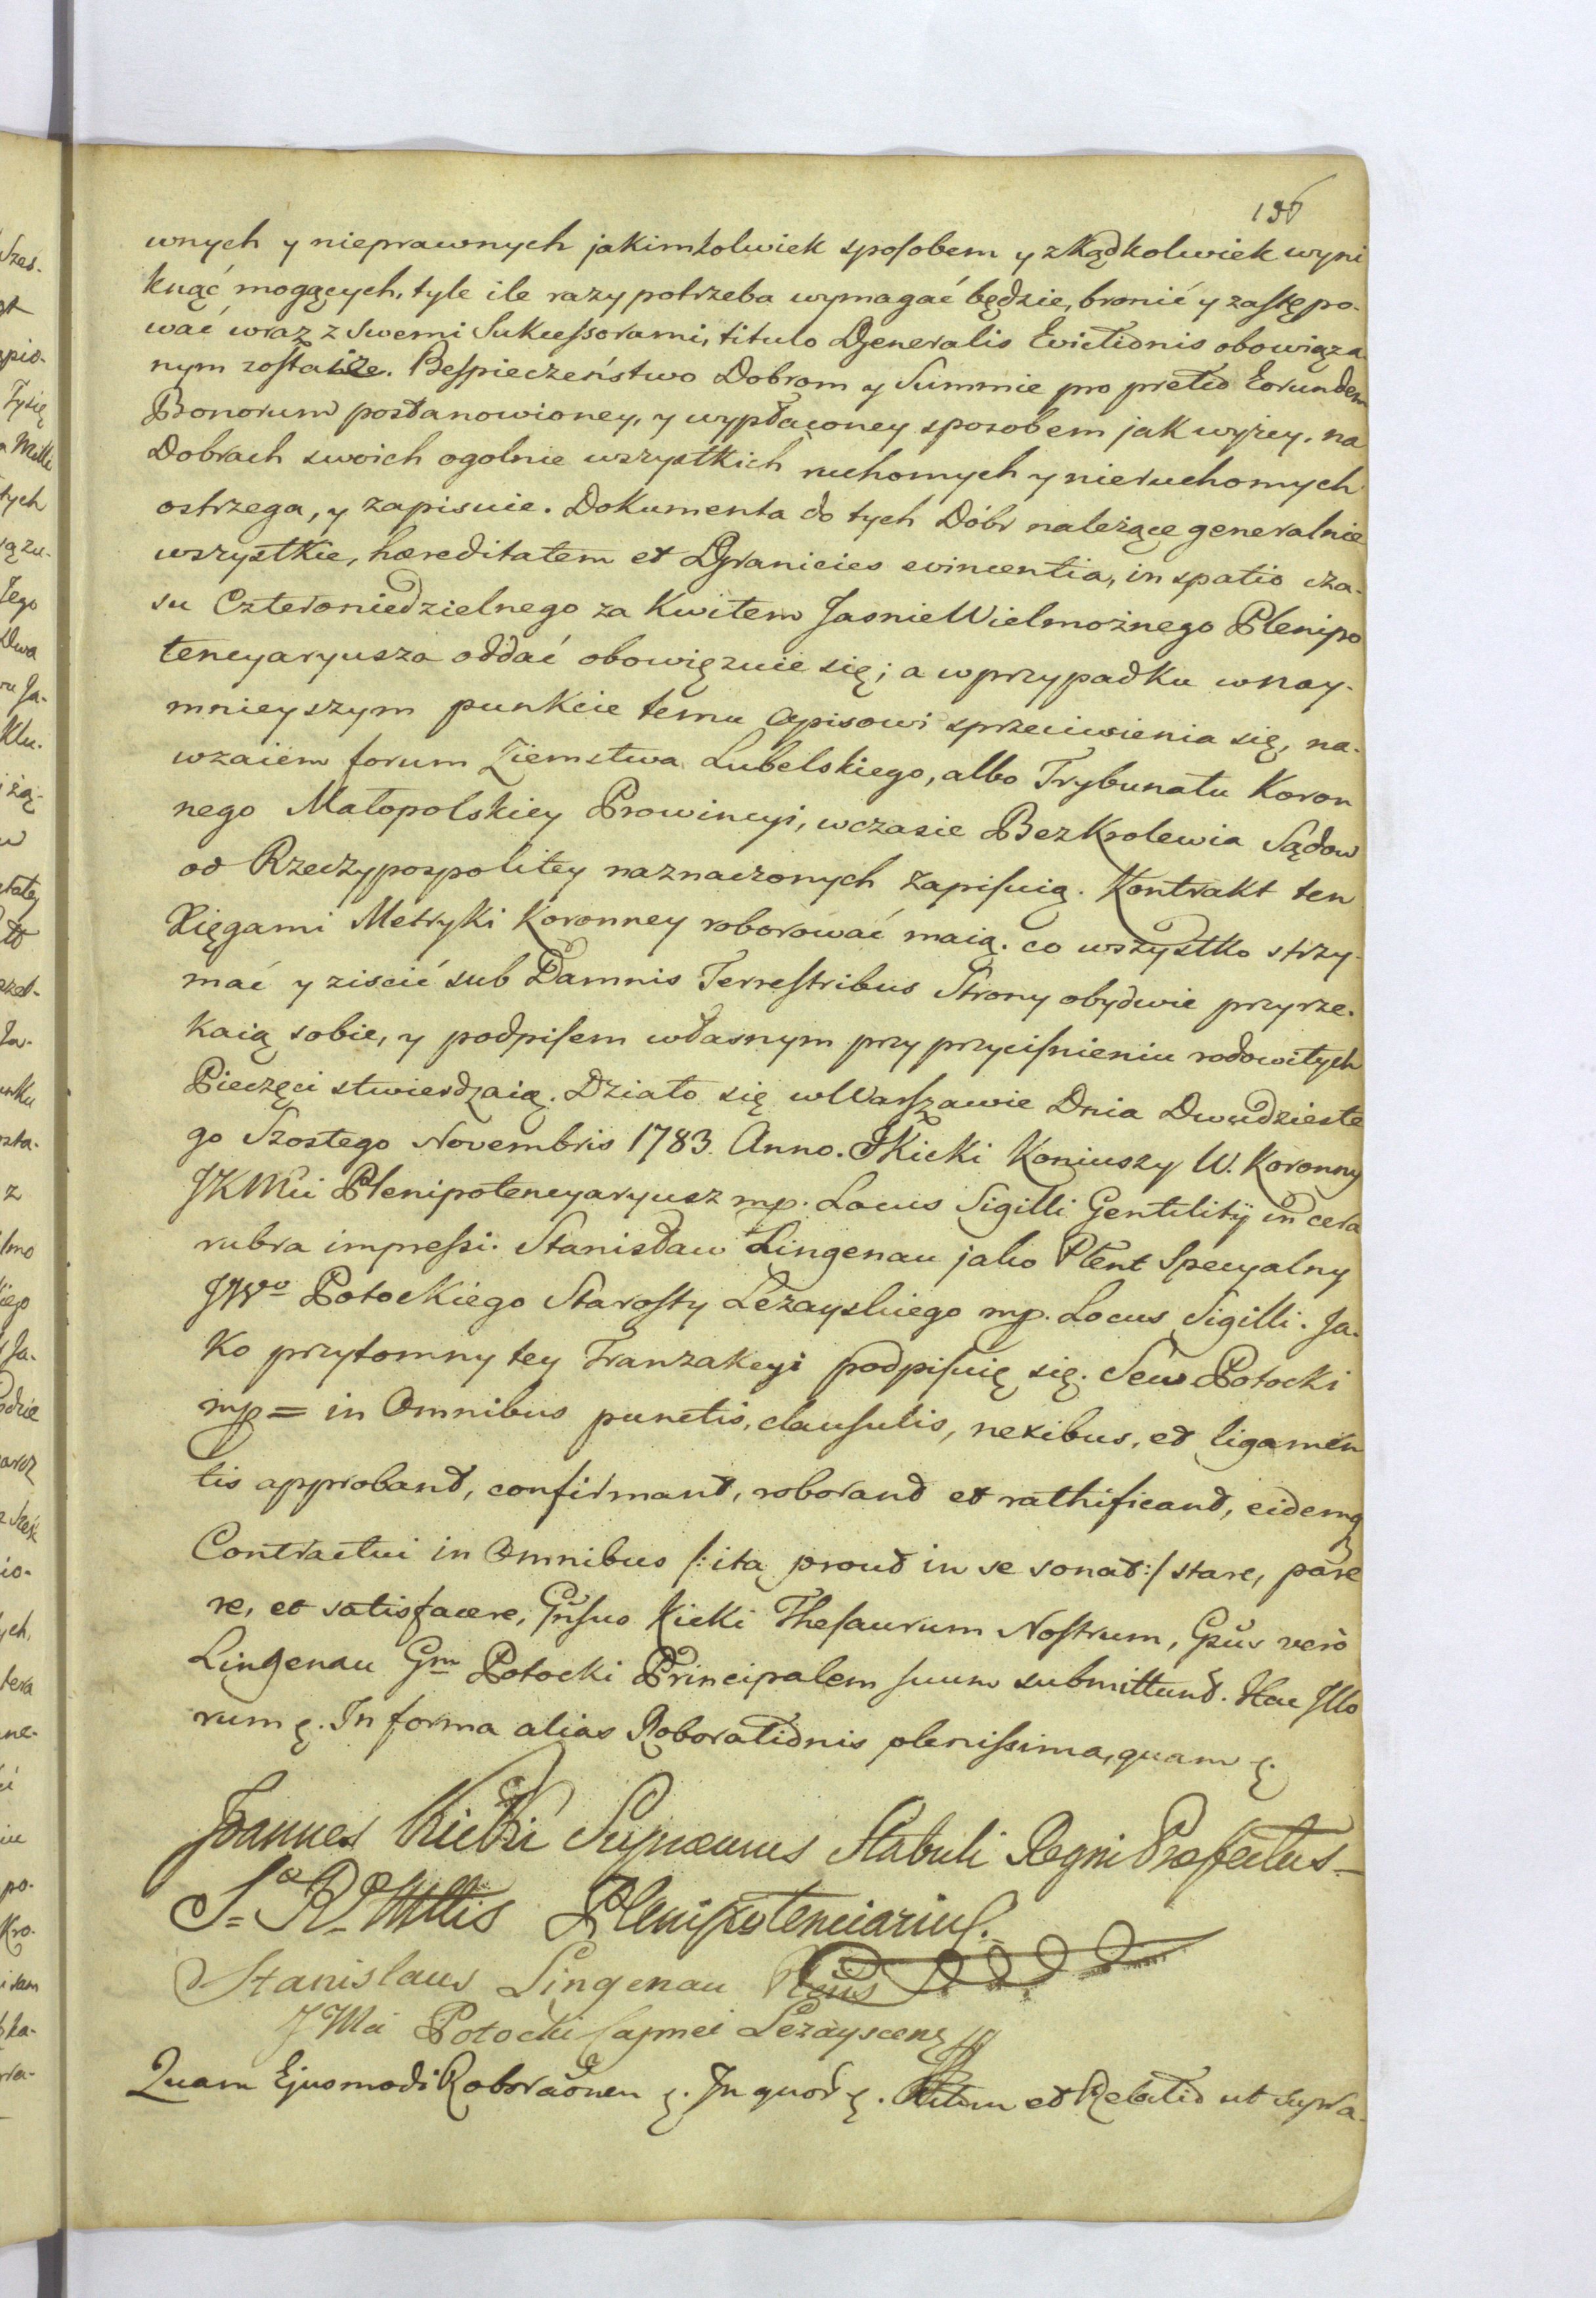 196
wnych y nieprawnych jakimkolwiek sposobem y zkądkolwiek wyni
knąć mogących, tyle ile razy potrzeba wymagać będzie, bronić y zastępo-
wać wraz z Swemi Sukcessorami, titulo Generalis Evictionis obowiąza
nym zostaie. Bespieczeństwo Dobrom y Summie pro pretio Eorundem
Bonorum postanowioney, y wypłaconey sposobem jak wyżey. na
Dobrach swoich ogolnie wszystkich ruchomych y nieruchomych
ostrzega, y zapisuie. Dokumenta do tych Dóbr należące generalnie
wszystkie, hæreditatem et Granicies evincentia, in spatio cza-
su Czteroniedzielnego za Kwitem Jasnie Wielmożnego Plenipo
tencyaryusza oddać obowięzuie się; a w przypadku w nay-
mnieyszym punkcie temu Opisowi sprzeciwienia się, na-
wzaiem forum Ziemstwa Lubelskiego, albo Trybunału Koron
nego Małopolskiey Prowincyi, w czasie Bezkrolewia Sądow
od Rzeczypospolitey naznaczonych zapisuią. Kontrakt ten
Xięgami Metryki Koronney roborować maią. co wszystko strzy-
mać y ziscić sub Damnis Terrestribus Strony obydwie przyrze-
kaią sobie, y podpisem własnym przy przyciśnieniu rodowitych
Pieczęci stwierdzaią. Działo się w Warszawie Dnia Dwudzieste
go Szostego Novembris 1783 Anno. JKicki Koniuszy W. Koronny
JKMci Plenipotencyaryusz mp. Locus Sigilli Gentilitij in cera
rubra impressi. Stanisław Lingenau jako Plent Specyalny
JWo Potockiego Starosty Leżayskiego mp. Locus Sigilli. Ja-
ko przytomny tey Tranzakcyi podpisuię się. Sew Potocki
mp = in Omnibus punctis, clausulis, nexibus, et ligamen
tis approband, confirmand, roborand et rathificand, eidemq
Contractui in Omnibus /: ita prout in se sonat :/ stare, pare
re, et satisfacere, Gnsus Kicki Thesaurum Nostrum, Gsus verò
Lingenau Gm Potocki Principalem suum submittund. Hac Illo
rum. In forma alias Roborationis plenissima, quam
Joannes Kicki Supremus Stabuli Regni Præfectus -
S. R. Mttis Plenipotenciarius.
Stanislaus Lingenau Plnius
JMci Potocki Capnei Lezayscens mp
Quam Ejusmodi Roboraonem. In quor. Actum et Relatio ut supra.